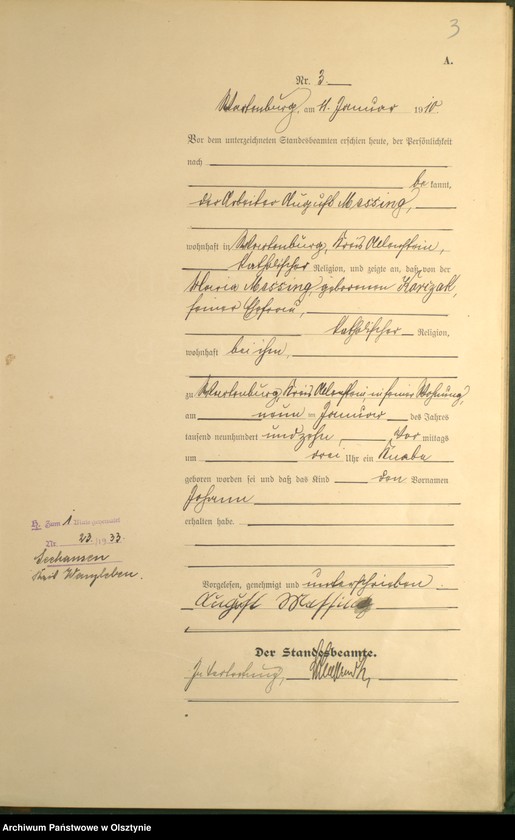 3
A.
Nr. 3
Wartenburg, am 11. Januar 1910.
Vor dem unterzeichneten Standesbeamten erschien heute, der Persönlichkeit
nach
be kannt,
der Arbeiter August Massing,
wohnhaft in Wartenburg, Kreis Allenstein,
katholischer Religion, und zeigte an, daß von der
Maria Massing geborenen
seiner Ehefrau,
katholischer Religion,
wohnhaft bei ihm,
zu Wartenburg, Kreis Allenstein, in seiner Wohnung,
am neun ten Januar des Jahres
tausend neunhundert und zehn, Vor mittags
um drei Uhr ein Knabe
geboren worden sei und daß das Kind den Vornamen
Johann
erhalten habe.
H. 1
Nr. 23. 1933
Seehausen
Kreis Wanzleben.
Vorgelesen, genehmigt und unterschrieben
August Massing
Der Standesbeamte.
In Vertretung,
Archiwum Państwowe w Olsztynie